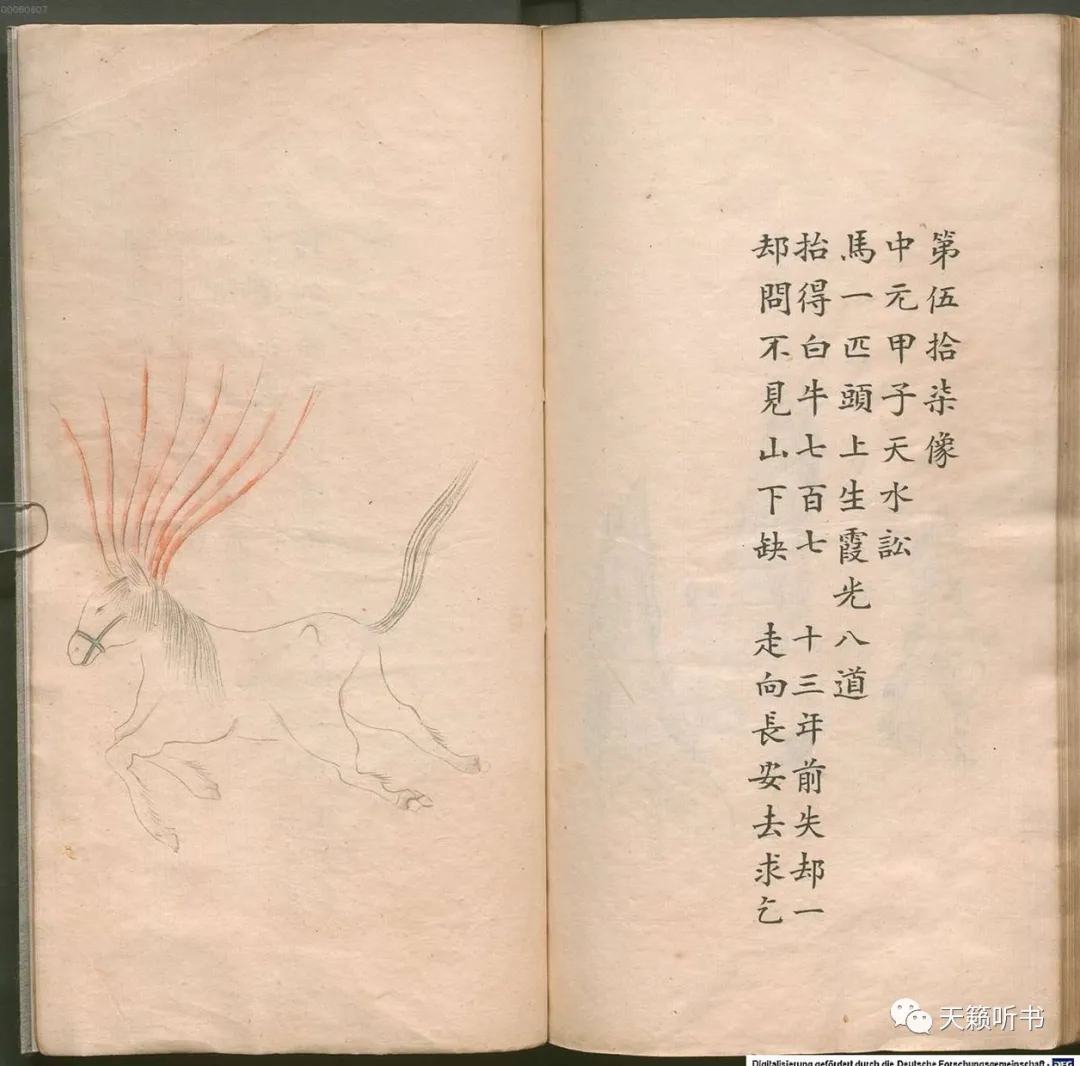 第伍拾柒像
中元甲子天水訟
馬一匹頭上生霞光八道
抬得白牛七百七 十三年前失却一
却問不見山下缺 走向長安去求乞
天籁听书
Digitalisierung gefördert durch die Deutsche Forschungsgemeinschaft · DFG